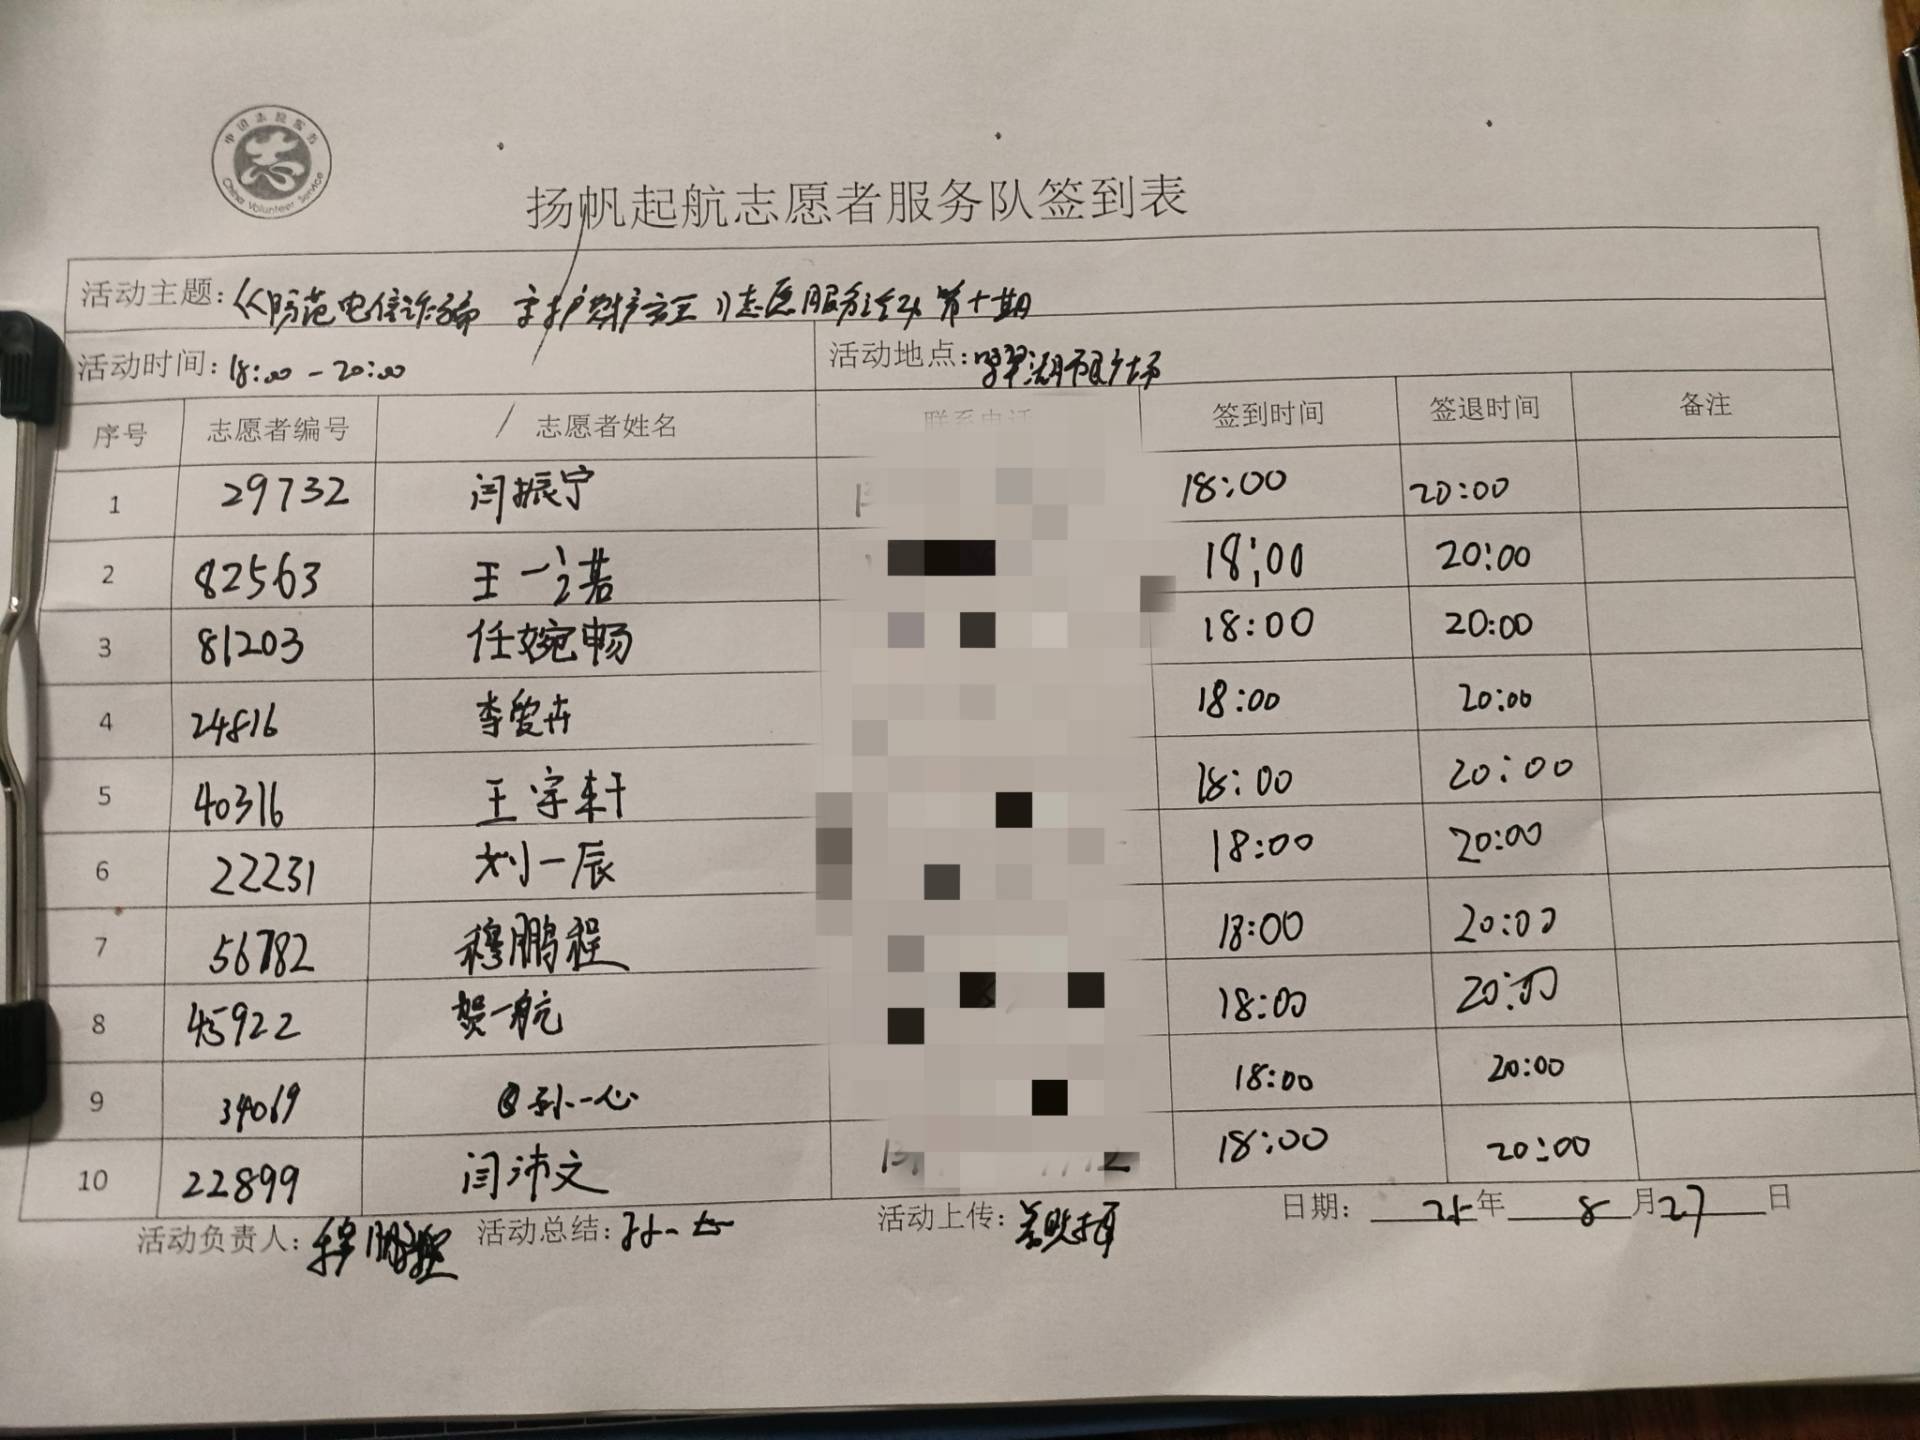 中国志愿服务
China Volunteer Service
扬帆起航志愿者服务队签到表
活动主题：《防范电信诈骗 守护财产安全》志愿服务活动 第十期
活动时间：18:00-20:00 活动地点：翠湖市民广场
序号 志愿者编号 志愿者姓名 联系电话 签到时间 签退时间 备注
1 29732 闫振宁 18:00 20:00
2 82563 王一诺 18:00 20:00
3 81203 任婉畅 18:00 20:00
4 24816 李爱卉 18:00 20:00
5 40316 王宇轩 18:00 20:00
6 22231 刘一辰 18:00 20:00
7 56782 穆鹏程 18:00 20:00
8 45922 贺一航 18:00 20:00
9 34069 孙一心 18:00 20:00
10 22899 闫沛文 18:00 20:00
活动负责人： 活动总结： 活动上传： 日期： 25年 8月27日